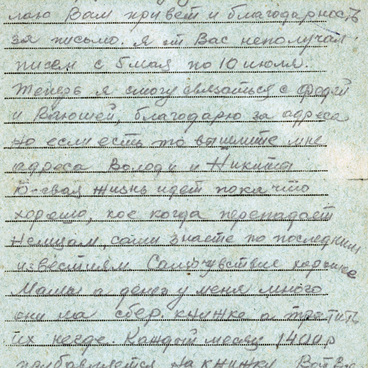 лаю Вам привет и благодарность
за письмо. Я от Вас неполучал
писем с 6 мая по 10 июля.
Теперь я смогу связаться с Фадей
и Ваюшей, благодарю за адреса
но если есть то вышлите мне
адреса Володи и Никиты
Боевая жизнь идет пока что
хорошо, кое когда перепадает
немцам, сами знаете по последним
известиям Самочувствие хорошее
Мама а денег у меня много
они на сбер. книжке а тратить
их негде. Каждый месяц 1400 р
прибавляется на книжку